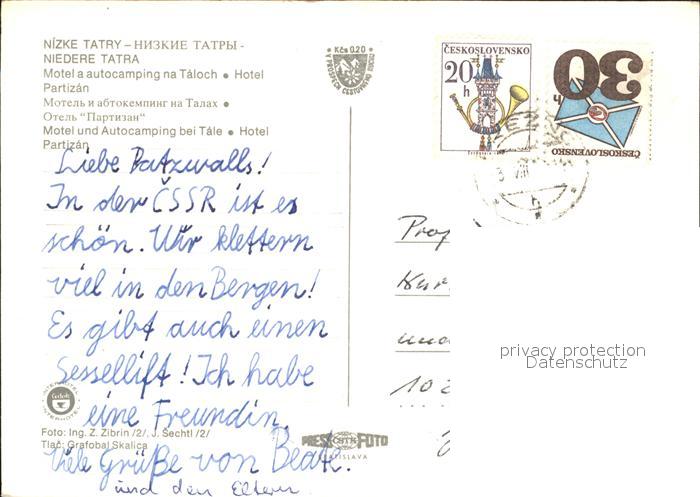 NÍZKE TATRY – НИЗКИЕ ТАТРЫ -
NIEDERE TATRA
Motel a autocamping na Táloch ● Hotel
Partizán
Мотель и автокемпинг на Талах ●
Отель "Партизан"
Motel und Autocamping bei Tále ● Hotel
Partizán
Kčs 0,20
ČESKOSLOVENSKO
20
h
30
h
ČESKOSLOVENSKO
Liebe Patzwalls!
In der ČSSR ist es
schön. Wir klettern
viel in den Bergen!
Es gibt auch einen
Sessellift! Ich habe
eine Freundin.
Viele Grüße von Beate.
und den Eltern.
Prof
Kur
und
102
privacy protection
Datenschutz
INTERHOTEL
Foto: Ing. Z. Zibrin /2/, J. Šechtl /2/
Tlač: Grafobal Skalica
PRESSFOTO
BRATISLAVA